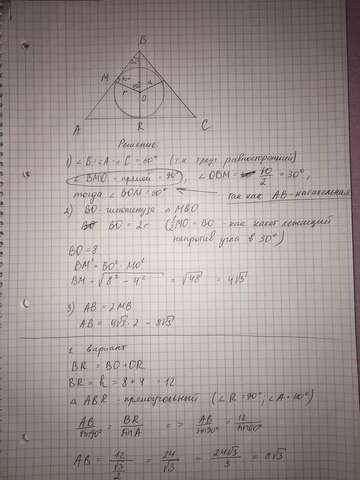 B
M
r
r
O
A
R
C
Решение:
1) ∠B=∠A=∠C = 60° (т.к. треуг. равносторонний)
∠BMO - прямой = 90°, ∠OBM = 60/2 = 30°,
тогда ∠BOM = 60°
так как AB - касательная
2) BO - гипотенуза △MBO
BO = 2r (½ MO = BO - как катет лежащий
напротив угла в 30°)
BO = 8
BM² = BO² - MO²
BM = √(8² - 4²) = √48 = 4√3
3) AB = 2MB
AB = 4√3 · 2 = 8√3
2 вариант
BR = BO + OR
BR = h = 8 + 4 = 12
△ ABR - прямоугольный (∠R = 90°; ∠A = 60°)
AB/sin90° = BR/sinA => AB/sin90° = 12/sin60°
AB = 12/(√3/2) = 24/√3 = 24√3/3 = 8√3